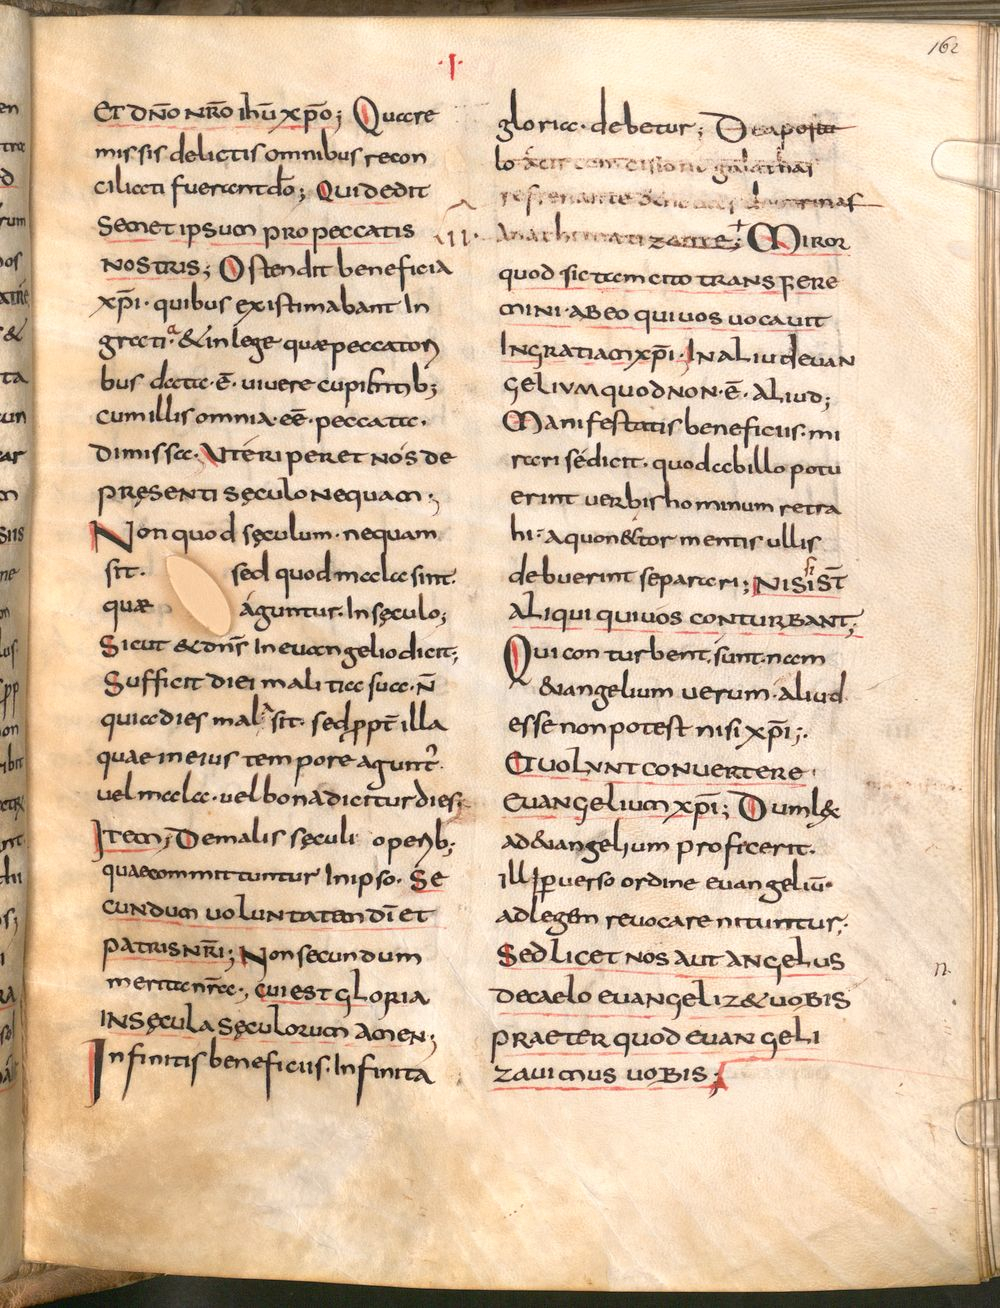 ·I·
162
Et dño nr̃o ihũ xp̃o; Quare
missis delictis omnibus recon
ciliati fuerant dõ; Qui dedit
semet ipsum pro peccatis
nostris; Ostendit beneficia
xp̃i· quibus existimabant In
grati·a & in lege quæ peccatori
bus data·ẽ· vivere cupientib;
cum illis omnia·eẽ· peccata·
dimissa· Ut eriperet nos de
pręsenti sęculo nequam;
Non quod sęculum· nequam
sit· sed quod mala sint·
quæ aguntur· In sęculo;
Sicut & dñs In euangelio dicit;
Sufficit diei malitia sua· ñ
quia dies mala sit· sed ꝓpt̃ illa
quae in eius tempore agunt᷑·
vel mala· vel bona dicitur dies;
Item; De malis sęculi operib;
quae committuntur In ipso· Se
cundum voluntatem dĩ et
patris nr̃i; Non secundum
merita nr̃a·; cui est gloria
in sęcula sęculorum amen;
Infinitis beneficiis· Infinita
gloria· debetur; De aposto
lo a circumcisione galathas
refrenante
·II· Anathematizante; Miror
quod sic tam cito transfere
mini· ab eo qui uos uocauit
In gratiam xp̃i· In aliud euan
gelium quod non·ẽ· aliud;
Manifestatis beneficiis· mi
rari se dicit· quod ab illo potu
erint uerbis hominum retra
hi· a quo n& tormentis ullis
debuerint separari; Nisi st̃
aliqui qui uos conturbant;
Qui conturbent· sunt· nam
&uangelium uerum· aliud
esse non potest nisi xp̃i;·
Et volunt convertere·
euangelium xp̃i; Dum l&
ad &uangelium profecerit·
ill ꝑverso ordine euangeliũ·
ad legem revocare nituntur;·
Sed licet nos aut angelus
de caelo euangeliz& uobis
praeter quod euangeli
zauimus uobis;
n·